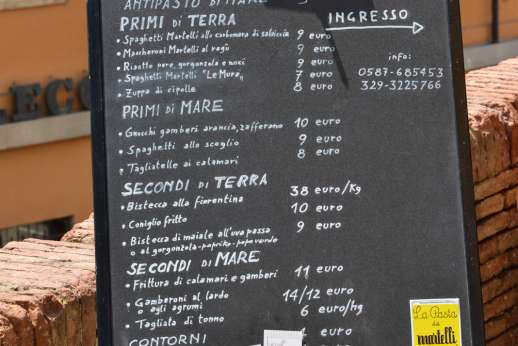 ANTIPASTO DI MARE
PRIMI DI TERRA
INGRESSO
• Spaghetti Martelli alla carbonara di salsiccia 9 euro
• Maccheroni Martelli al ragù 9 euro
• Risotto pere, gorgonzola e noci 9 euro
• Spaghetti Martelli "Le Mura" 7 euro
• Zuppa di cipolle 8 euro
info:
0587-685453
329-3225766
PRIMI DI MARE
• Gnocchi gamberi arancia, zafferano 10 euro
• Spaghetti allo scoglio 9 euro
• Tagliatelle ai calamari 8 euro
SECONDI DI TERRA
• Bistecca alla fiorentina 38 euro/Kg
• Coniglio fritto 10 euro
• Bistecca di maiale all'uva passa 9 euro
o al gorgonzola-paprika-pepe verde
SECONDI DI MARE
• Frittura di calamari e gamberi 11 euro
• Gamberoni al lardo 14/12 euro
o agli agrumi
• Tagliata di tonno 6 euro/hg
CONTORNI euro
La Pasta
da
martelli